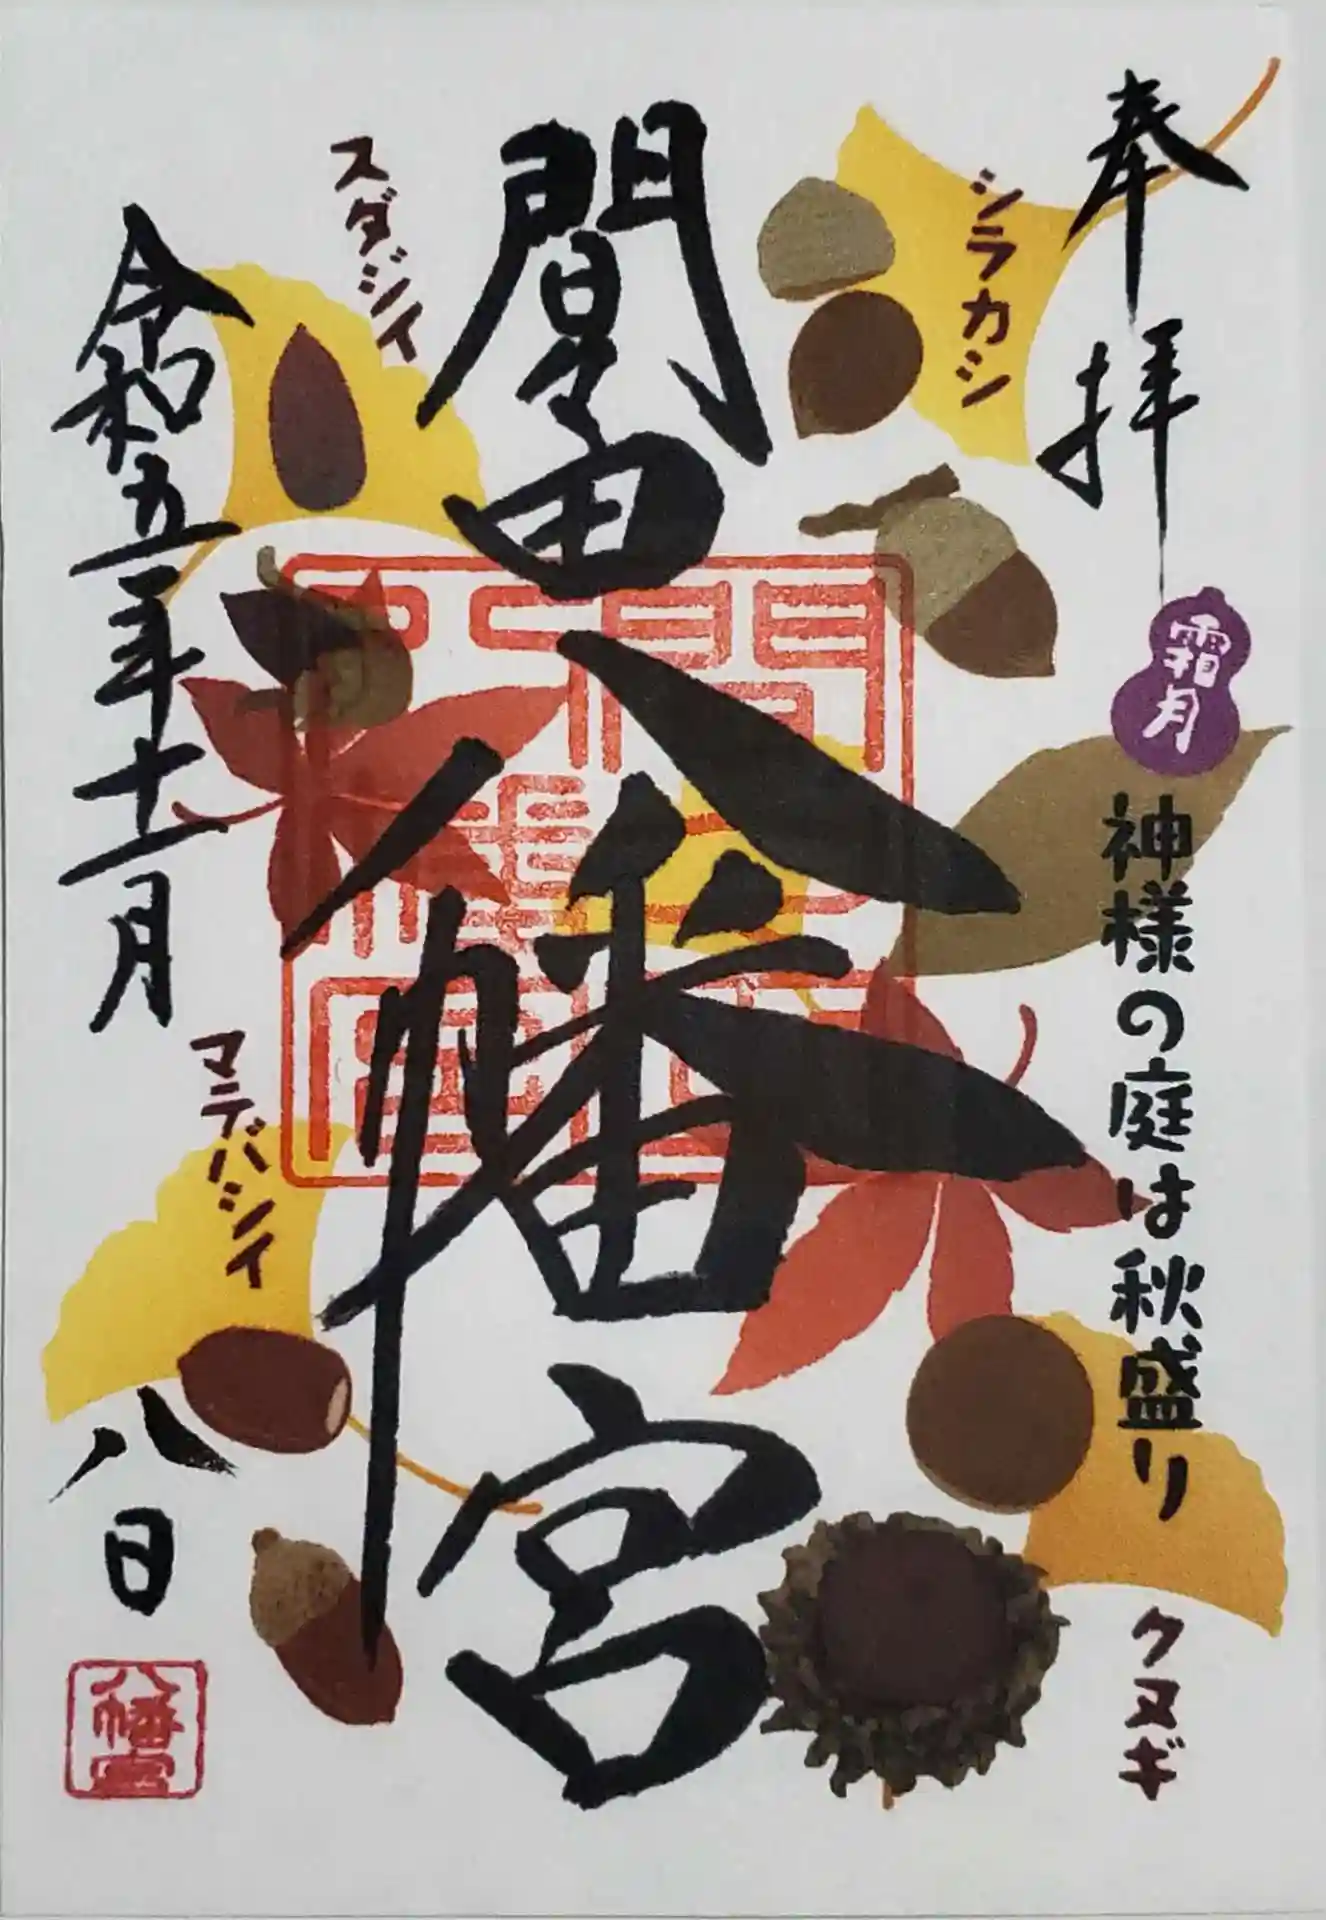 奉拝
霜月
神様の庭は秋盛り
シラカシ
クヌギ
間々田八幡宮
スダジイ
マテバシイ
令和五年十一月八日
八幡宮